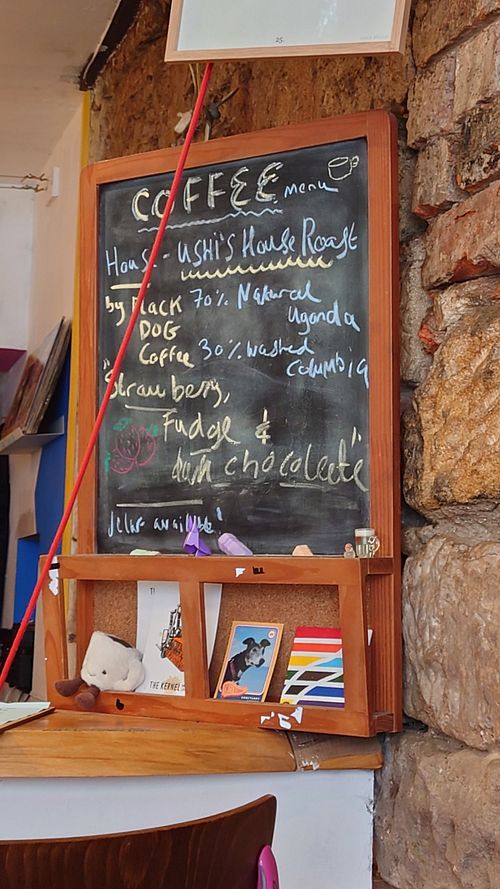 25.
COFFEE menu
House - USHI'S House Roast
by BLACK 70% Natural
DOG Uganda
Coffee 30% washed
Columbia
"Strawberry,
Fudge &
dark chocolate"
decaf available!
THE KERNEL
SANCTUARY